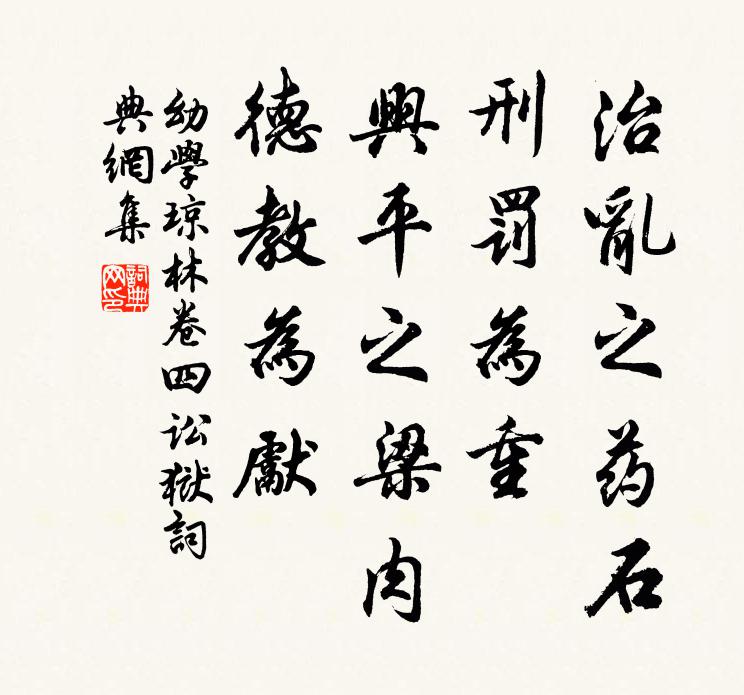 治亂之药石
刑罰為重
興平之梁肉
德教為獻
幼學琼林卷四訟獄詞
典網集
詞典
网印